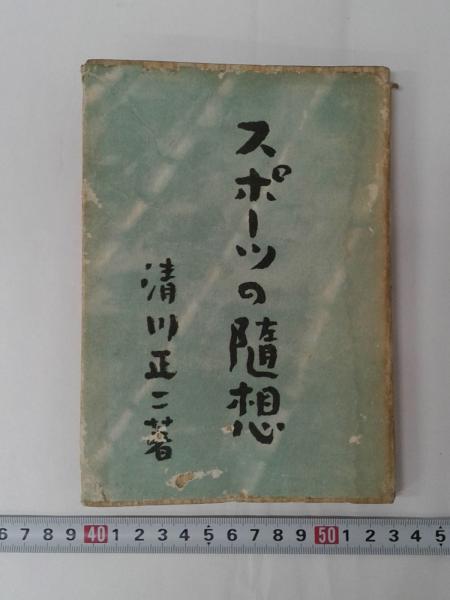 スポーツの隨想
清川正二著
6 7 8 9 40 1 2 3 4 5 6 7 8 9 50 1 2 3 4 5